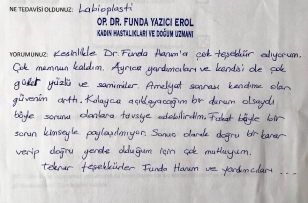 NE TEDAVİSİ OLDUNUZ: Labioplasti
OP. DR. FUNDA YAZICI EROL
KADIN HASTALIKLARI VE DOĞUM UZMANI
YORUMUNUZ: Kesinlikle Dr. Funda Hanım'a çok teşekkür ediyorum.
Çok memnun kaldım. Ayrıca yardımcıları ve kendisi de çok
güler yüzlü ve samimiler. Ameliyat sonrası kendime olan
güvenim arttı. Kolayca açıklayacağım bir durum olsaydı
böyle soruna olanlara tavsiye edebilirdim. Fakat böyle bir
sorun kimseyle paylaşılmıyor. Sonuç olarak doğru bir karar
verip doğru yerde olduğum için çok mutluyum.
Tekrar teşekkürler Funda Hanım ve yardımcıları ...